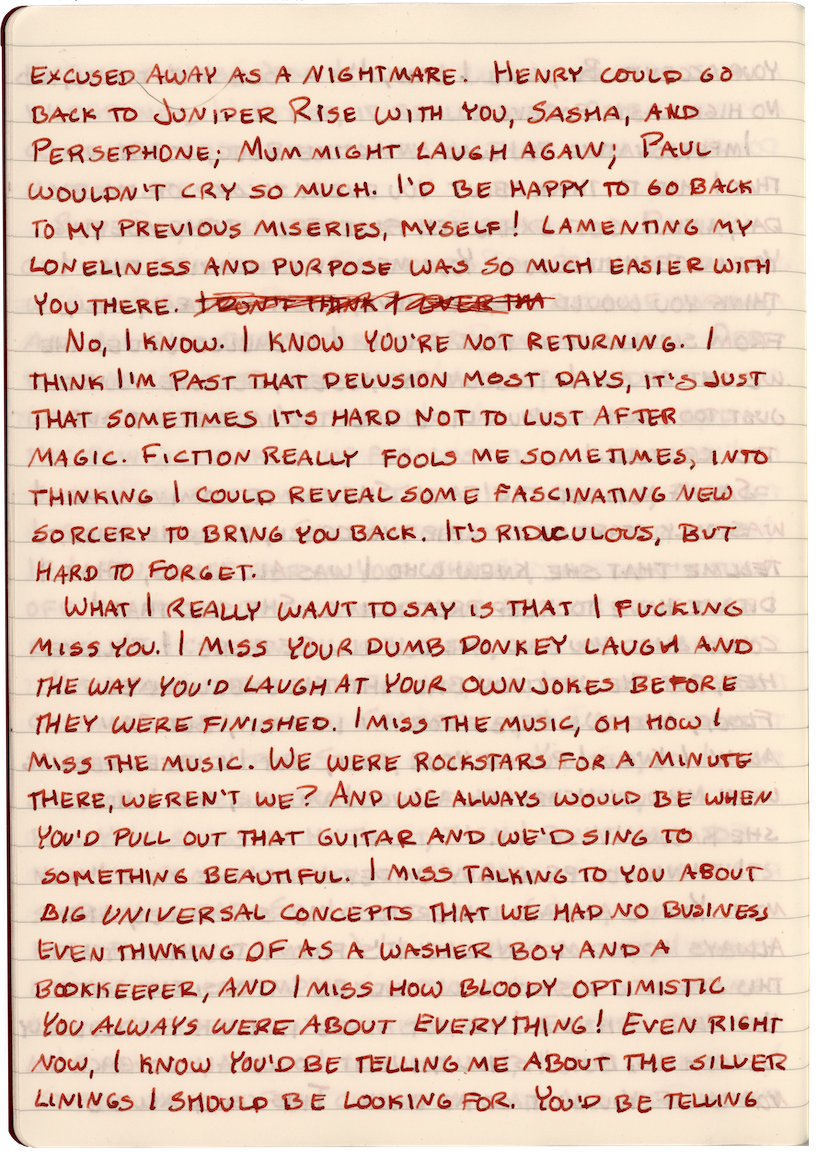 EXCUSED AWAY AS A NIGHTMARE. HENRY COULD GO
BACK TO JUNIPER RISE WITH YOU, SASHA, AND
PERSEPHONE; MUM MIGHT LAUGH AGAIN; PAUL
WOULDN'T CRY SO MUCH. I'D BE HAPPY TO GO BACK
TO MY PREVIOUS MISERIES, MYSELF! LAMENTING MY
LONELINESS AND PURPOSE WAS SO MUCH EASIER WITH
YOU THERE. I DON'T THINK I EVER
NO, I KNOW. I KNOW YOU'RE NOT RETURNING. I
THINK I'M PAST THAT DELUSION MOST DAYS, IT'S JUST
THAT SOMETIMES IT'S HARD NOT TO LUST AFTER
MAGIC. FICTION REALLY FOOLS ME SOMETIMES, INTO
THINKING I COULD REVEAL SOME FASCINATING NEW
SORCERY TO BRING YOU BACK. IT'S RIDICULOUS, BUT
HARD TO FORGET.
WHAT I REALLY WANT TO SAY IS THAT I FUCKING
MISS YOU. I MISS YOUR DUMB DONKEY LAUGH AND
THE WAY YOU'D LAUGH AT YOUR OWN JOKES BEFORE
THEY WERE FINISHED. I MISS THE MUSIC, OH HOW I
MISS THE MUSIC. WE WERE ROCKSTARS FOR A MINUTE
THERE, WEREN'T WE? AND WE ALWAYS WOULD BE WHEN
YOU'D PULL OUT THAT GUITAR AND WE'D SING TO
SOMETHING BEAUTIFUL. I MISS TALKING TO YOU ABOUT
BIG UNIVERSAL CONCEPTS THAT WE HAD NO BUSINESS
EVEN THINKING OF AS A WASHER BOY AND A
BOOKKEEPER, AND I MISS HOW BLOODY OPTIMISTIC
YOU ALWAYS WERE ABOUT EVERYTHING! EVEN RIGHT
NOW, I KNOW YOU'D BE TELLING ME ABOUT THE SILVER
LININGS I SHOULD BE LOOKING FOR. YOU'D BE TELLING